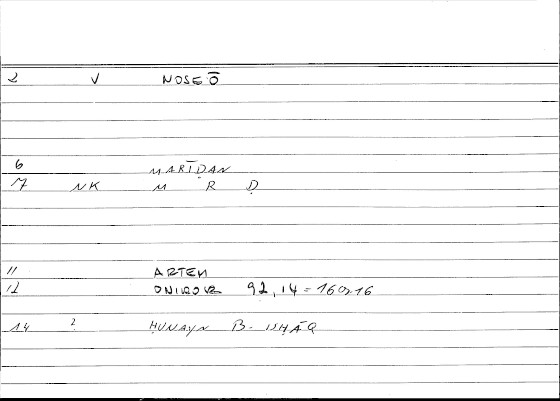 2 V NOSEŌ
6 MARĪḌAN
7 NK M R Ḍ
11 ARTEM
12 ONIROK 92,14 = 160,16
14 2 ḤUNAYN B. IṢḤĀQ